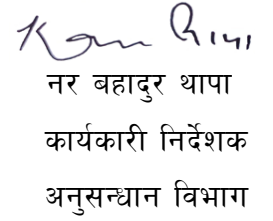 नर बहादुर थापा
कार्यकारी निर्देशक
अनुसन्धान विभाग